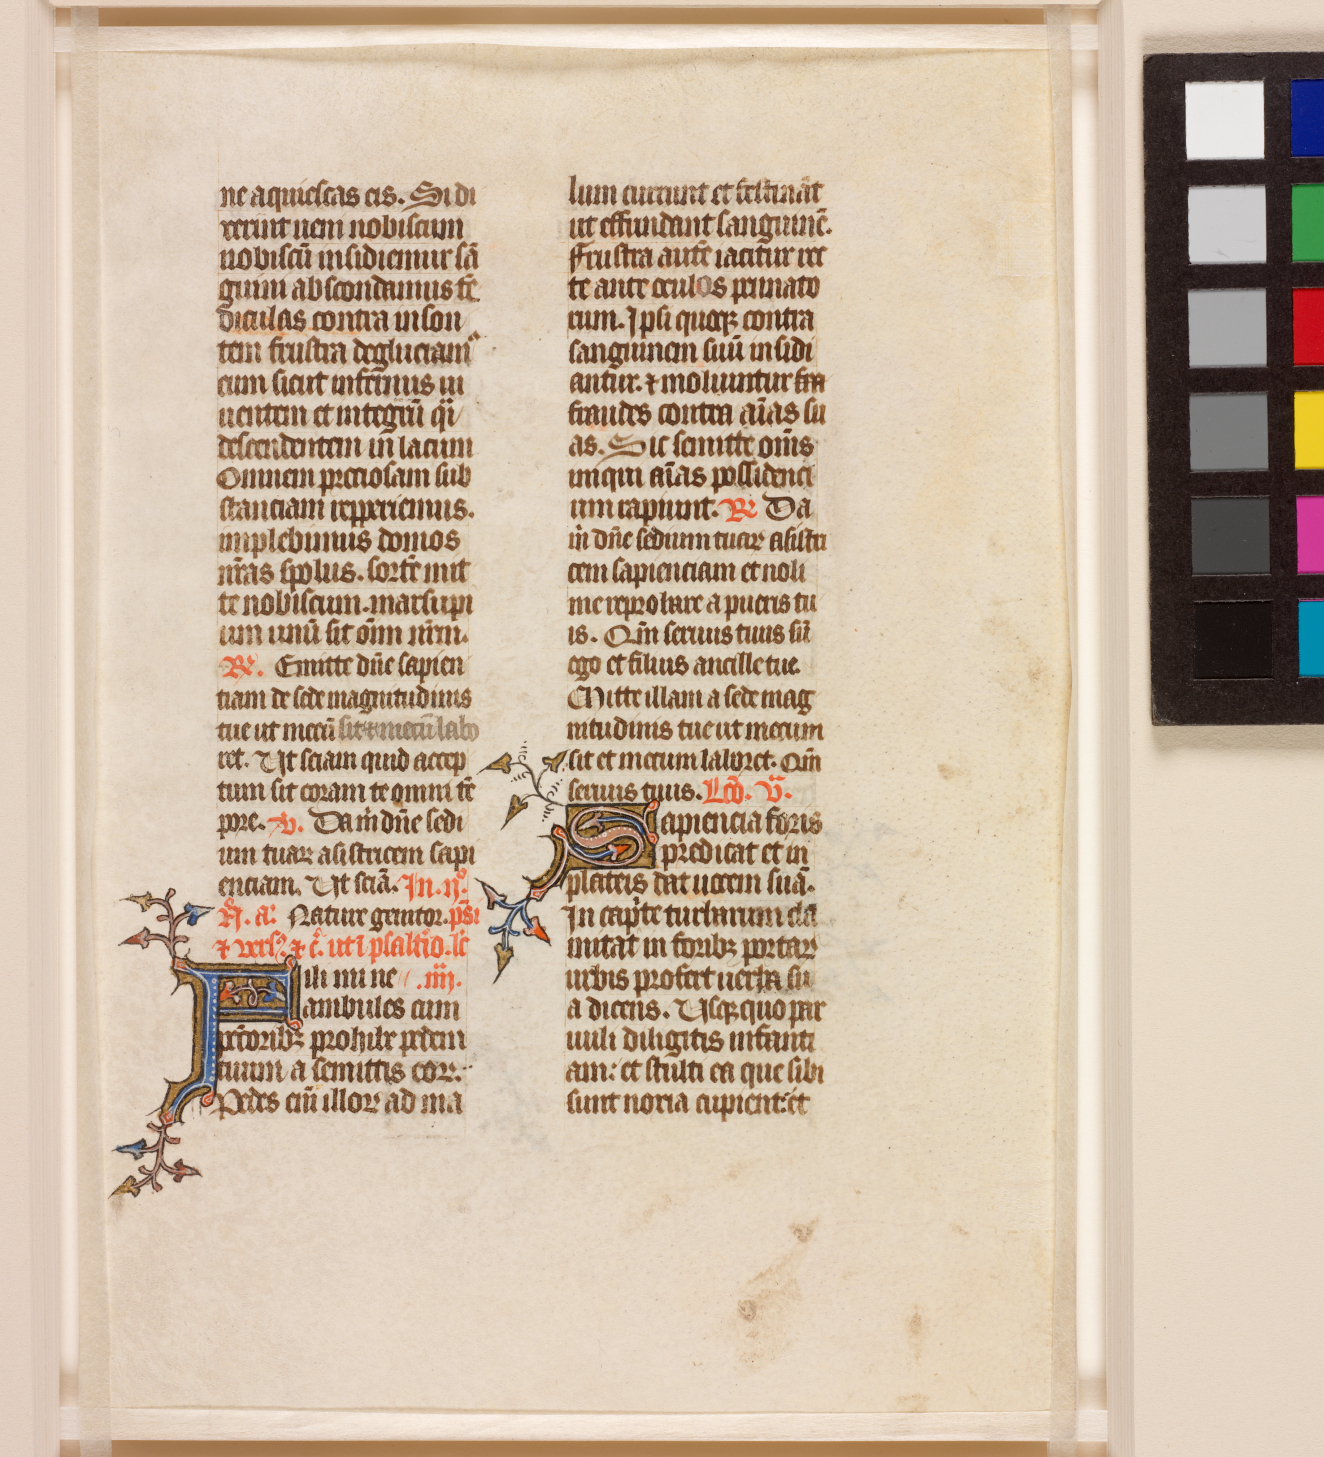 ne aquiescas eis. Si di
xerint ueni nobiscum
nobiscū insidiemur sā
guini abscondamus tē
diculas contra inson
tem frustra deglutiamꝰ
eum sicut infernus ui
uentem et integrū q̄i
descendentem in lacum
Omnem preciosam sub
stanciam repperiemus.
implebimus domos
nr̄as spoliis. sortē mit
te nobiscum. marsupi
um unū sit om̄i nr̄m.
R̄. Emitte dn̄e sapien
tiam de sede magnitudinis
tue ut mecū sit et mecū labo
ret. Ut sciam quid accep
tum sit coram te omni tē
pore. v. Da m̄ dn̄e sedi
um tuaꝝ asistricem sapi
enciam. Ut sciā. In. ijº.
N̄. a. Nature genitor. ps̄i
⁊ vers⁹. ⁊ c̄. ut ī psalt̄io. lc̄
Fili mi ne .iiij.
ambules cum
pctōribꝫ prohibe pedem
tuum a semittis eoꝝ.
Pedes eni illoꝝ ad ma
lum currunt et festināt
ut effundant sanguinē.
Frustra autē iacitur re
te ante oculos pennato
rum. Ipsi quoqꝫ contra
sanguinem suū insidi
antur. ⁊ moliuntur
fraudes contra aīas su
as. Sic semitte om̄is
iniqui aīas possidenci
um rapiunt. R̄ Da
m̄ dn̄e sedium tuaꝝ asistri
cem sapienciam et noli
me reprobare a pueris tu
is. Qm̄ seruus tuus sū
ego et filius ancille tue.
Mitte illam a sede mag
nitudinis tue ut mecum
sit et mecum laboret. Qm̄
seruus tuus. Lc̄o. v̄.
Sapiencia foris
predicat et in
plateis dat uocem suā.
In capite turbarum cla
mitat in foribꝫ portaꝝ
urbis profert uerba su
a dicens. Usqꝫ quo par
uuli diligitis infanti
am: et stulti ea que sibi
sunt noxia cupient: et